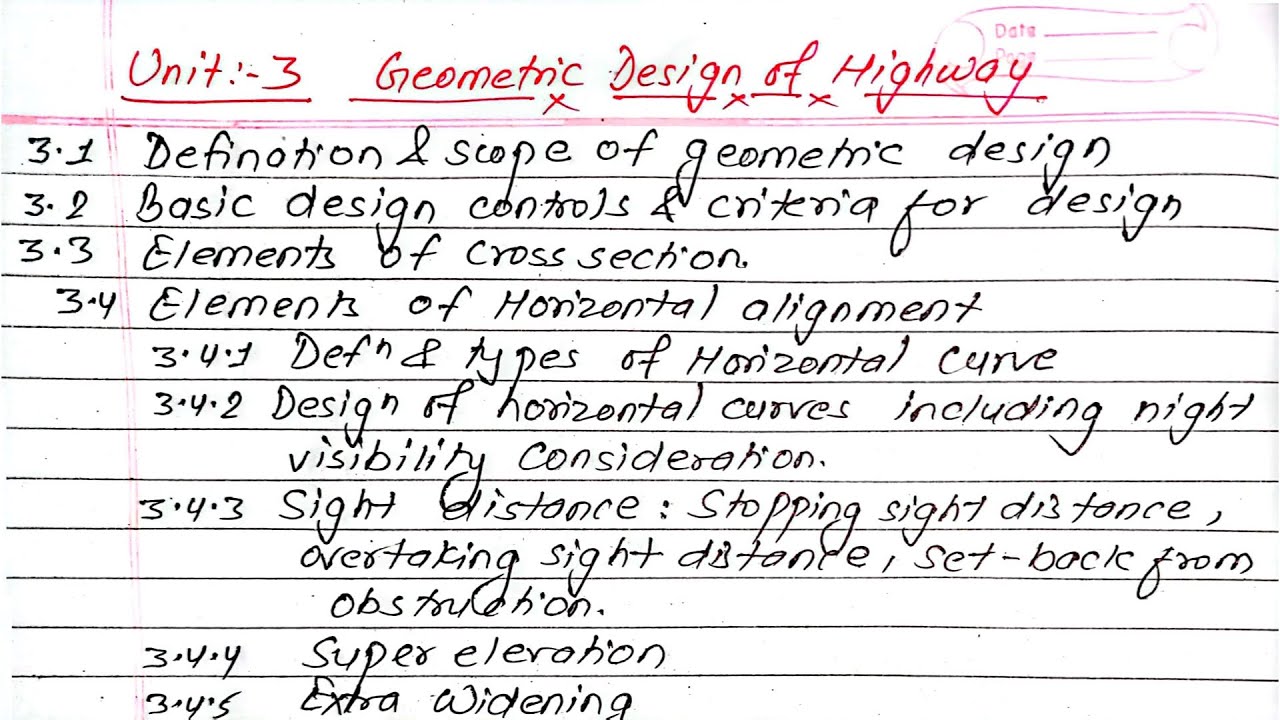 Date
Page
Unit:-3 Geometric Design of Highway
3.1 Defination & scope of geometric design
3.2 Basic design controls & criteria for design
3.3 Elements of cross section.
3.4 Elements of Horizontal alignment
3.4.1 Defⁿ & types of Horizontal Curve
3.4.2 Design of horizontal curves including night
visibility consideration.
3.4.3 Sight distance : Stopping sight distance,
overtaking sight distance, set-back from
obstruction.
3.4.4 Super elevation
3.4.5 Extra Widening